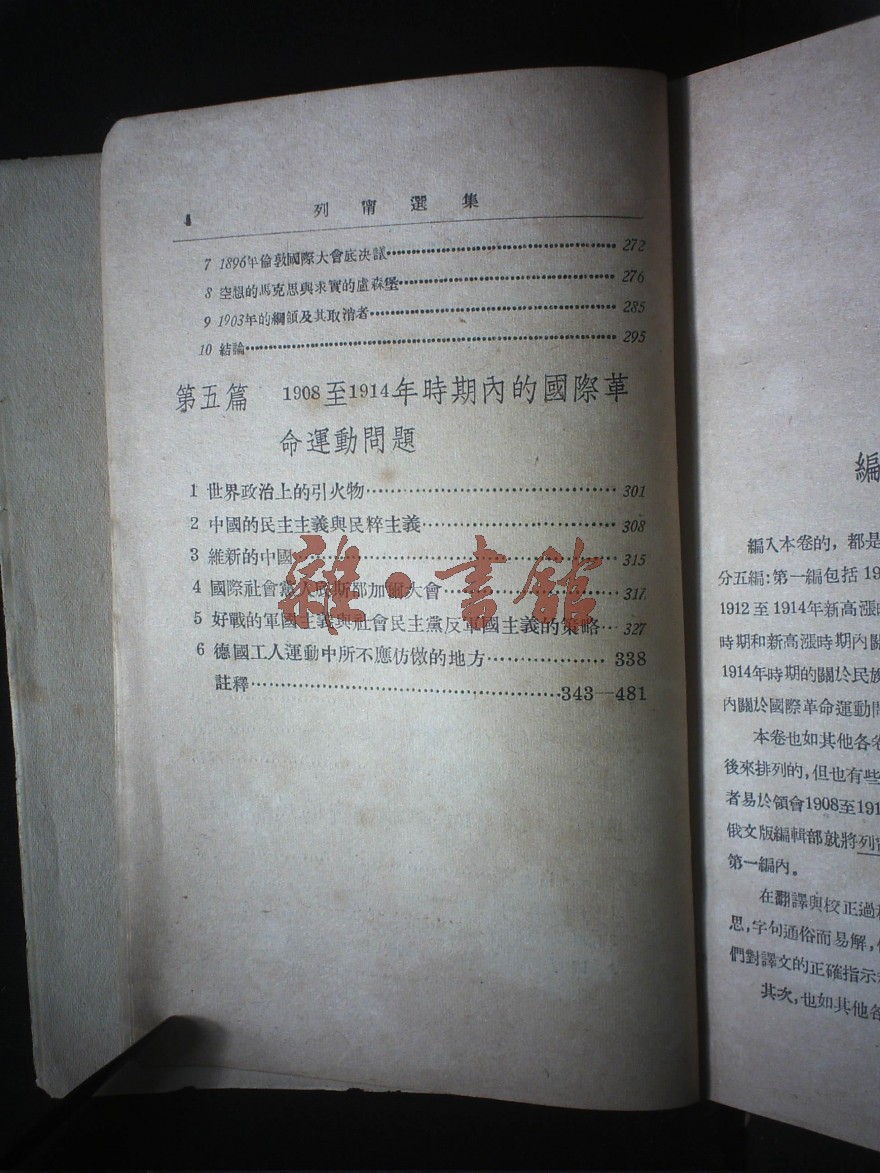 4 列甯選集
7 1896年倫敦國際大會底决議 272
8 空想的馬克思與求實的盧森堡 276
9 1903年的綱領及其取消者 285
10 結論 295
第五篇 1908至1914年時期內的國際革
命運動問題
1 世界政治上的引火物 301
2 中國的民主主義與民粹主義 308
3 維新的中國 315
4 國際社會黨人 斯都加爾大會 317
5 好戰的軍國主義與社會民主黨反軍國主義的策略 327
6 德國工人運動中所不應仿傚的地方 338
註釋 343—481
雜·書館
編
編入本卷的，都是
分五編：第一編包括 19
1912 至 1914年新高漲
時期和新高漲時期內關
1914年時期的關於民族
內關於國際革命運動問
本卷也如其他各卷
後來排列的，但也有些
者易於領會1908至191
俄文版編輯部就將列甯
第一編內。
在翻譯與校正過
思，字句通俗而易解，
們對譯文的正確指示
其次，也如其他各